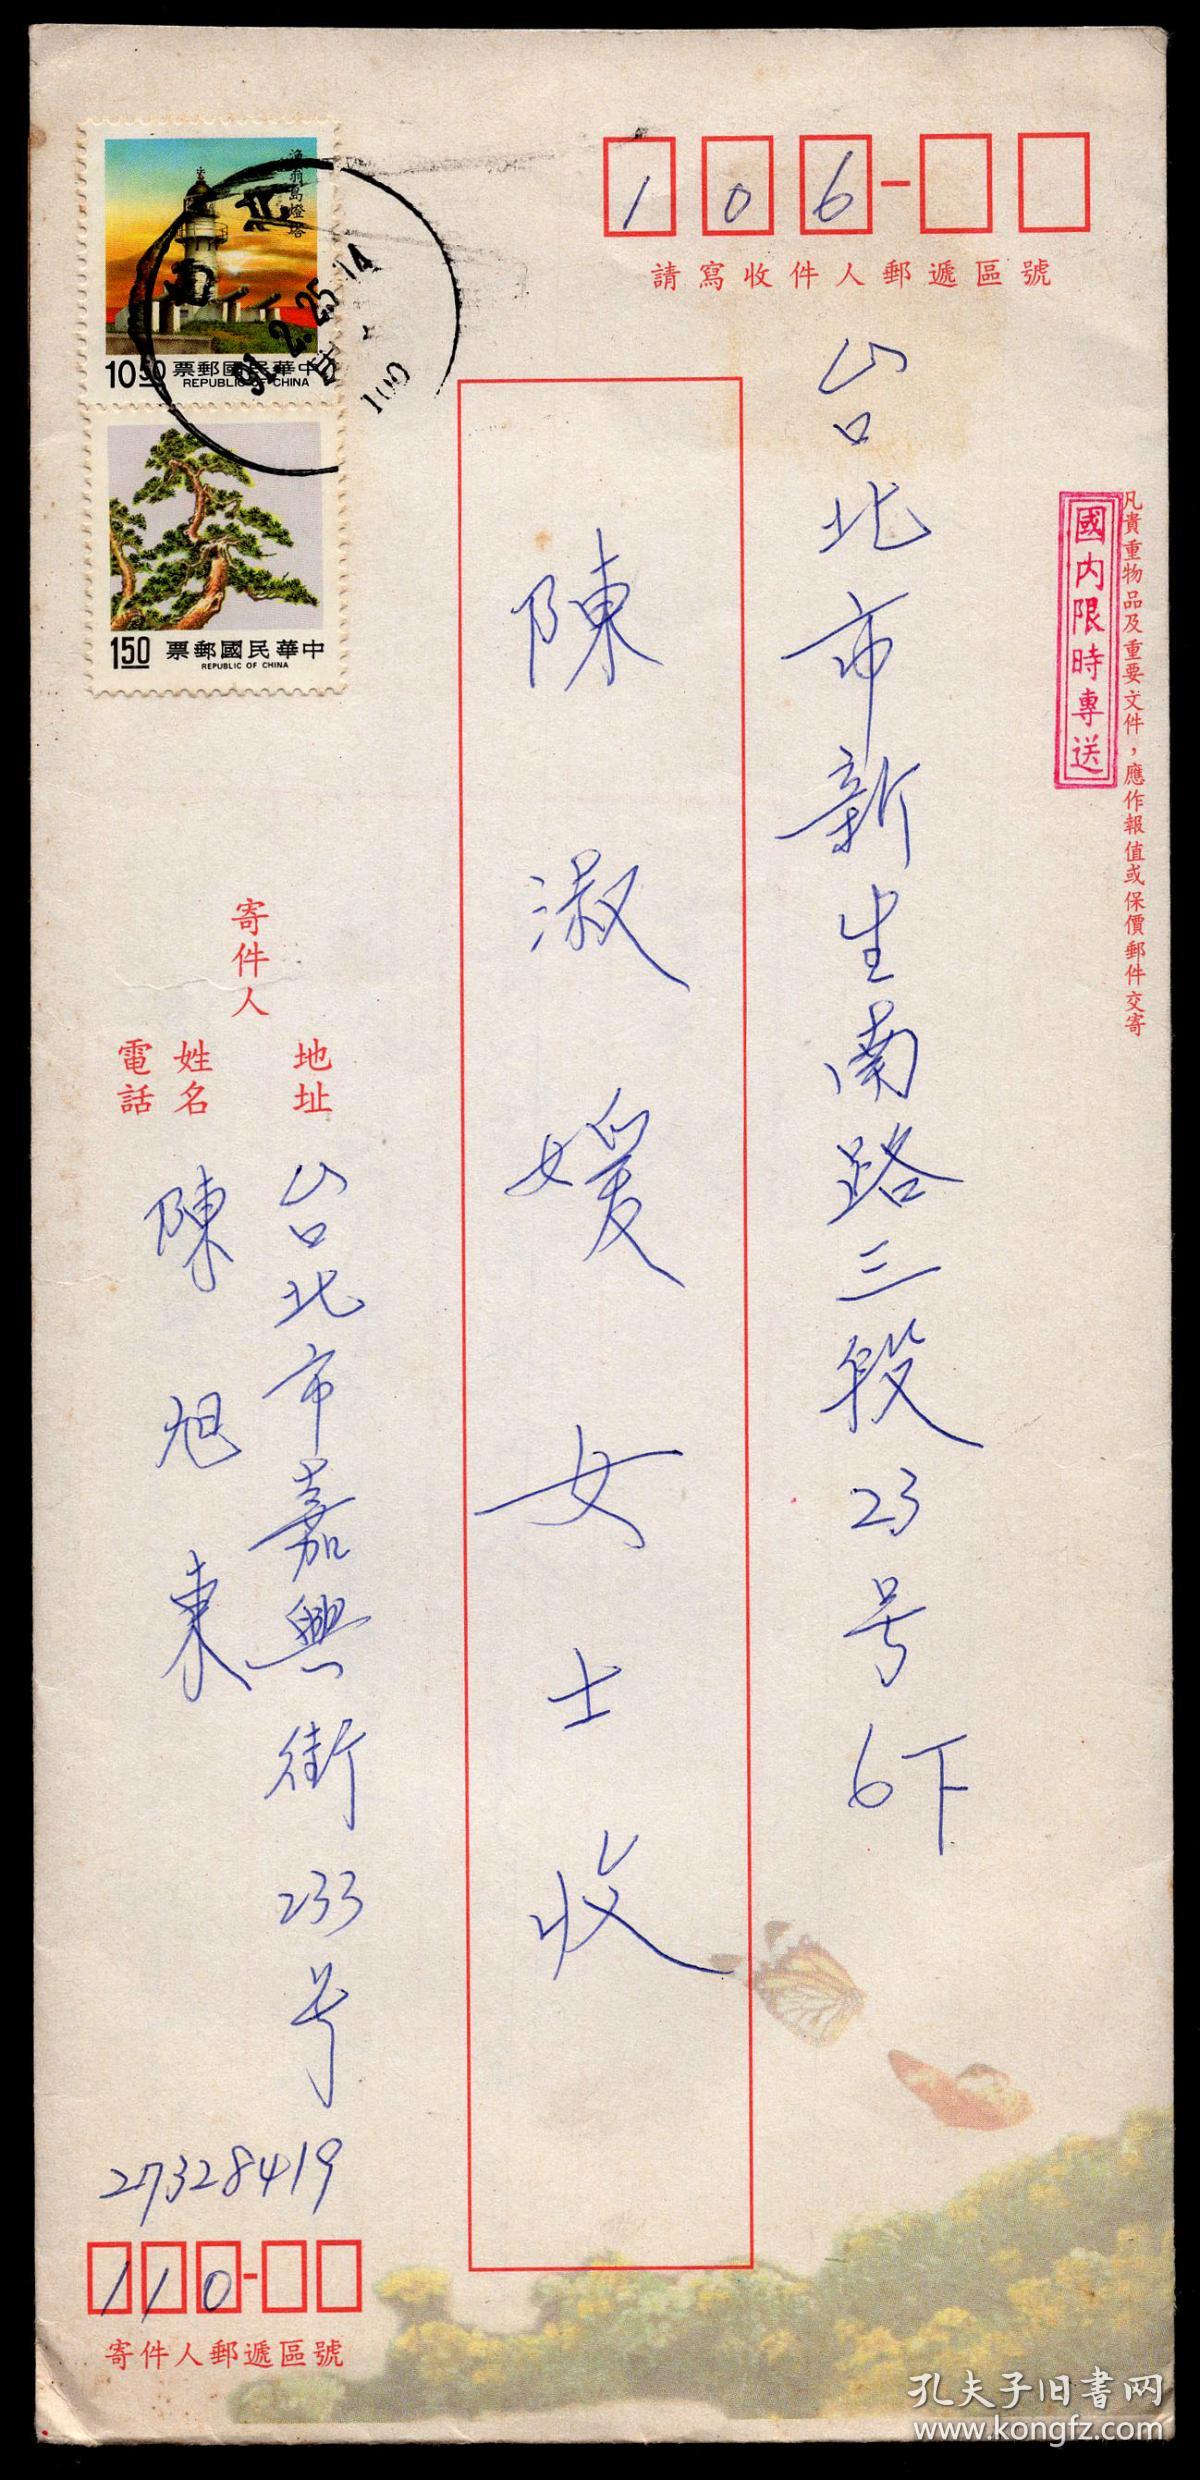 106
請寫收件人郵遞區號
凡貴重物品及重要文件，應作報值或保價郵件交寄
國內限時專送
台北市新生南路三段23号6F
陳淑媛女士收
漁翁島燈塔
10 50 票郵國民華中
REPUBLIC OF CHINA
91.2.25.14
100
150 票郵國民華中
REPUBLIC OF CHINA
寄件人
地址
台北市嘉興街233号
姓名
陳旭東
電話
27328419
110
寄件人郵遞區號
孔夫子旧书网
www.kongfz.com